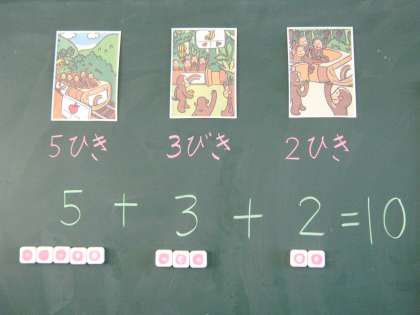 5ひき 3びき 2ひき
5 + 3 + 2 = 10